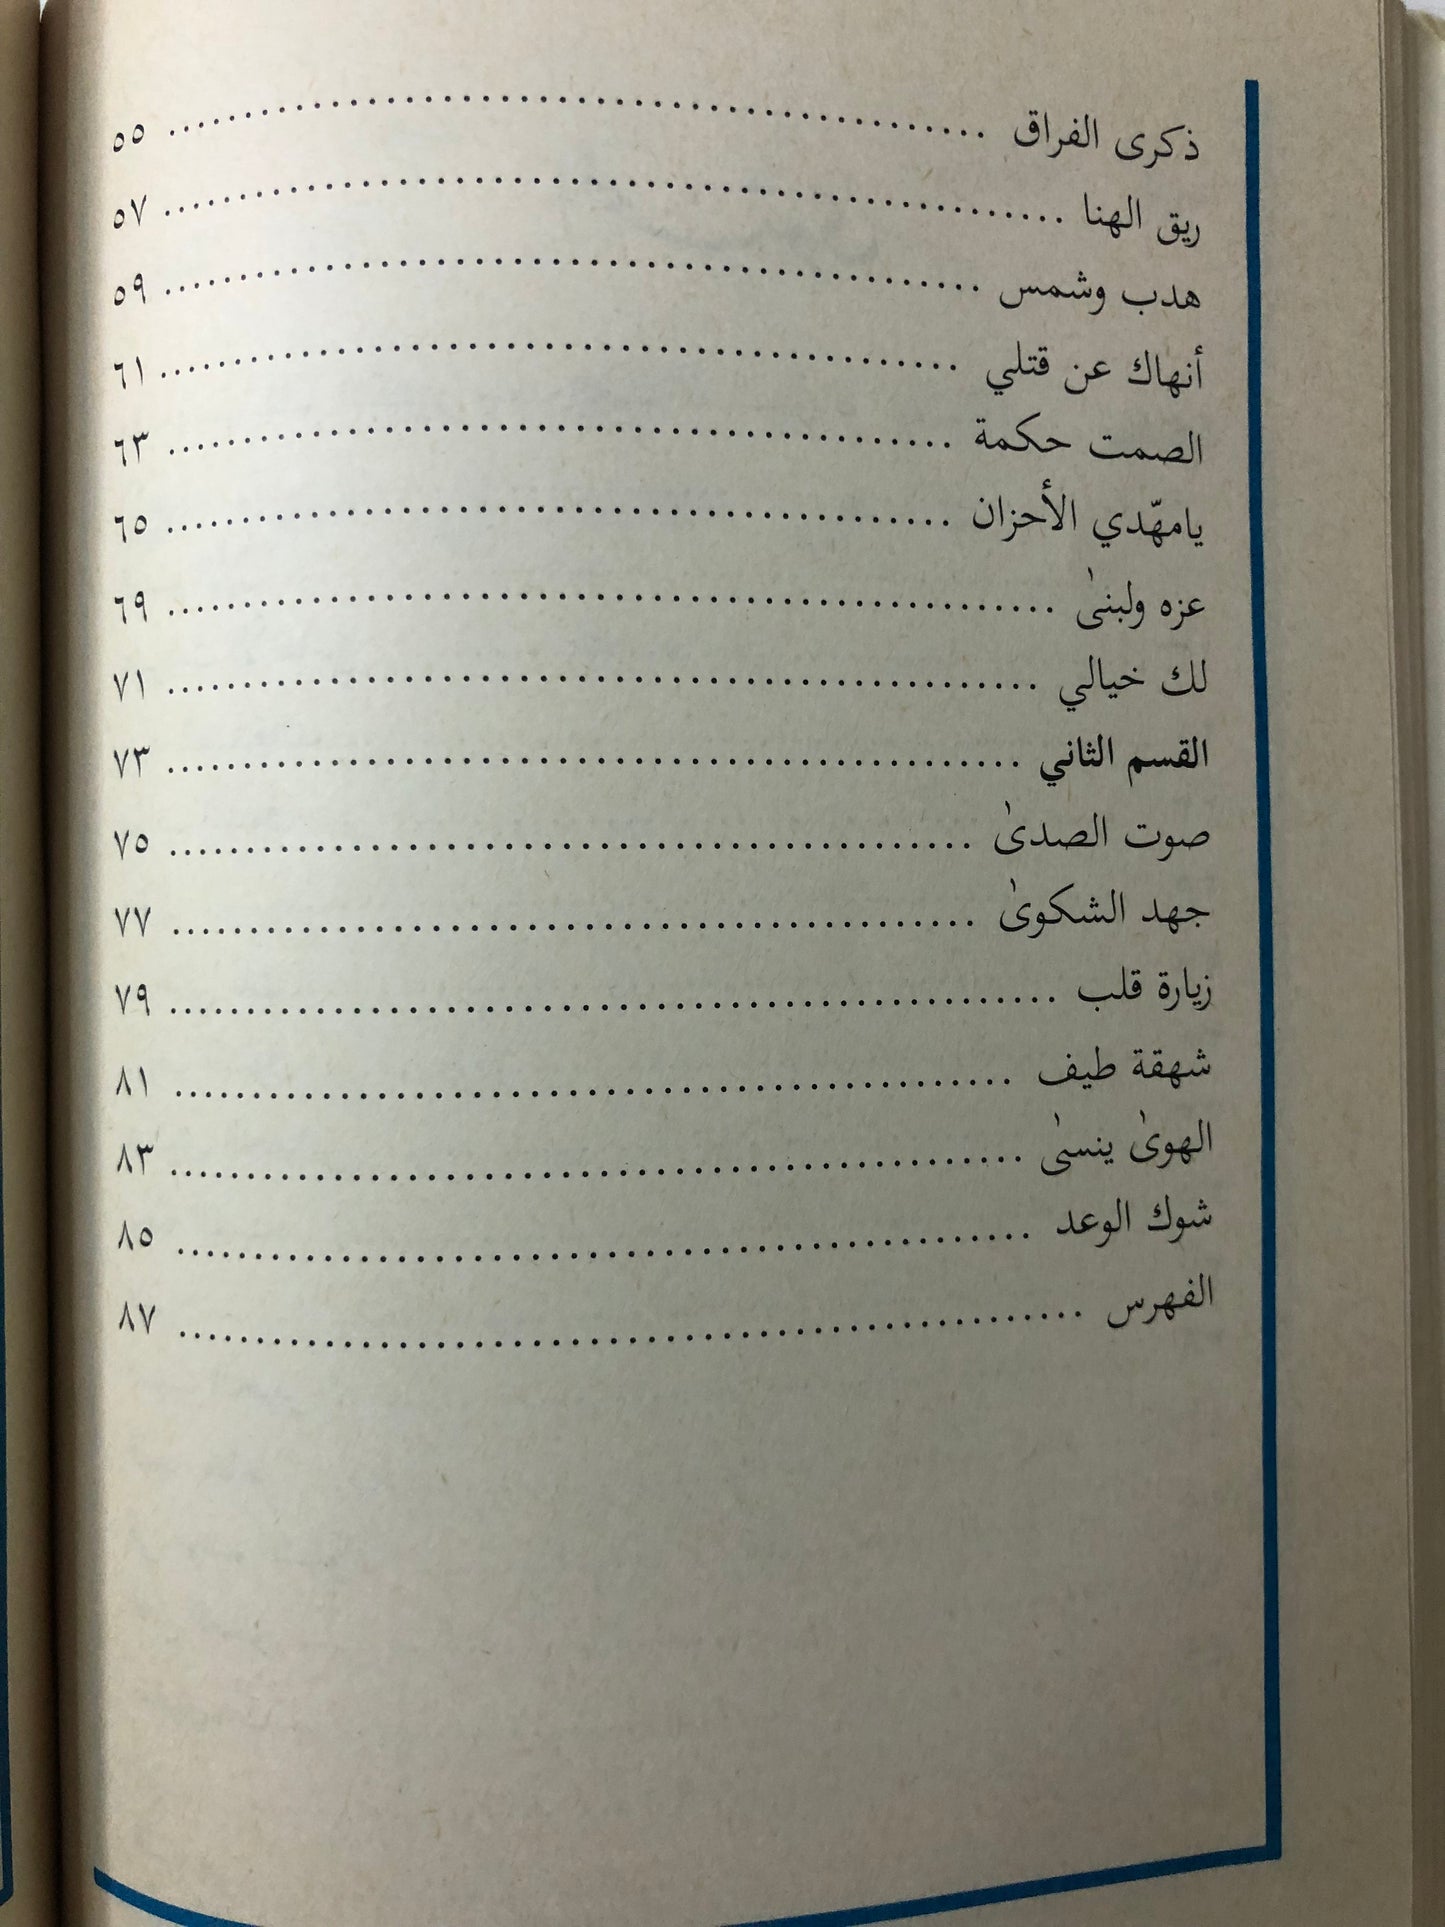 ذكرى الفراق ........ ٥٥
ريق الهنا ........ ٥٧
هدب وشمس ........ ٥٩
أنهاك عن قتلي ........ ٦١
الصمت حكمة ........ ٦٣
يامهّدي الأحزان ........ ٦٥
عزه ولبنىٰ ........ ٦٩
لك خيالي ........ ٧١
القسم الثاني ........ ٧٣
صوت الصدىٰ ........ ٧٥
جهد الشكوىٰ ........ ٧٧
زيارة قلب ........ ٧٩
شهقة طيف ........ ٨١
الهوىٰ ينسىٰ ........ ٨٣
شوك الوعد ........ ٨٥
الفهرس ........ ٨٧